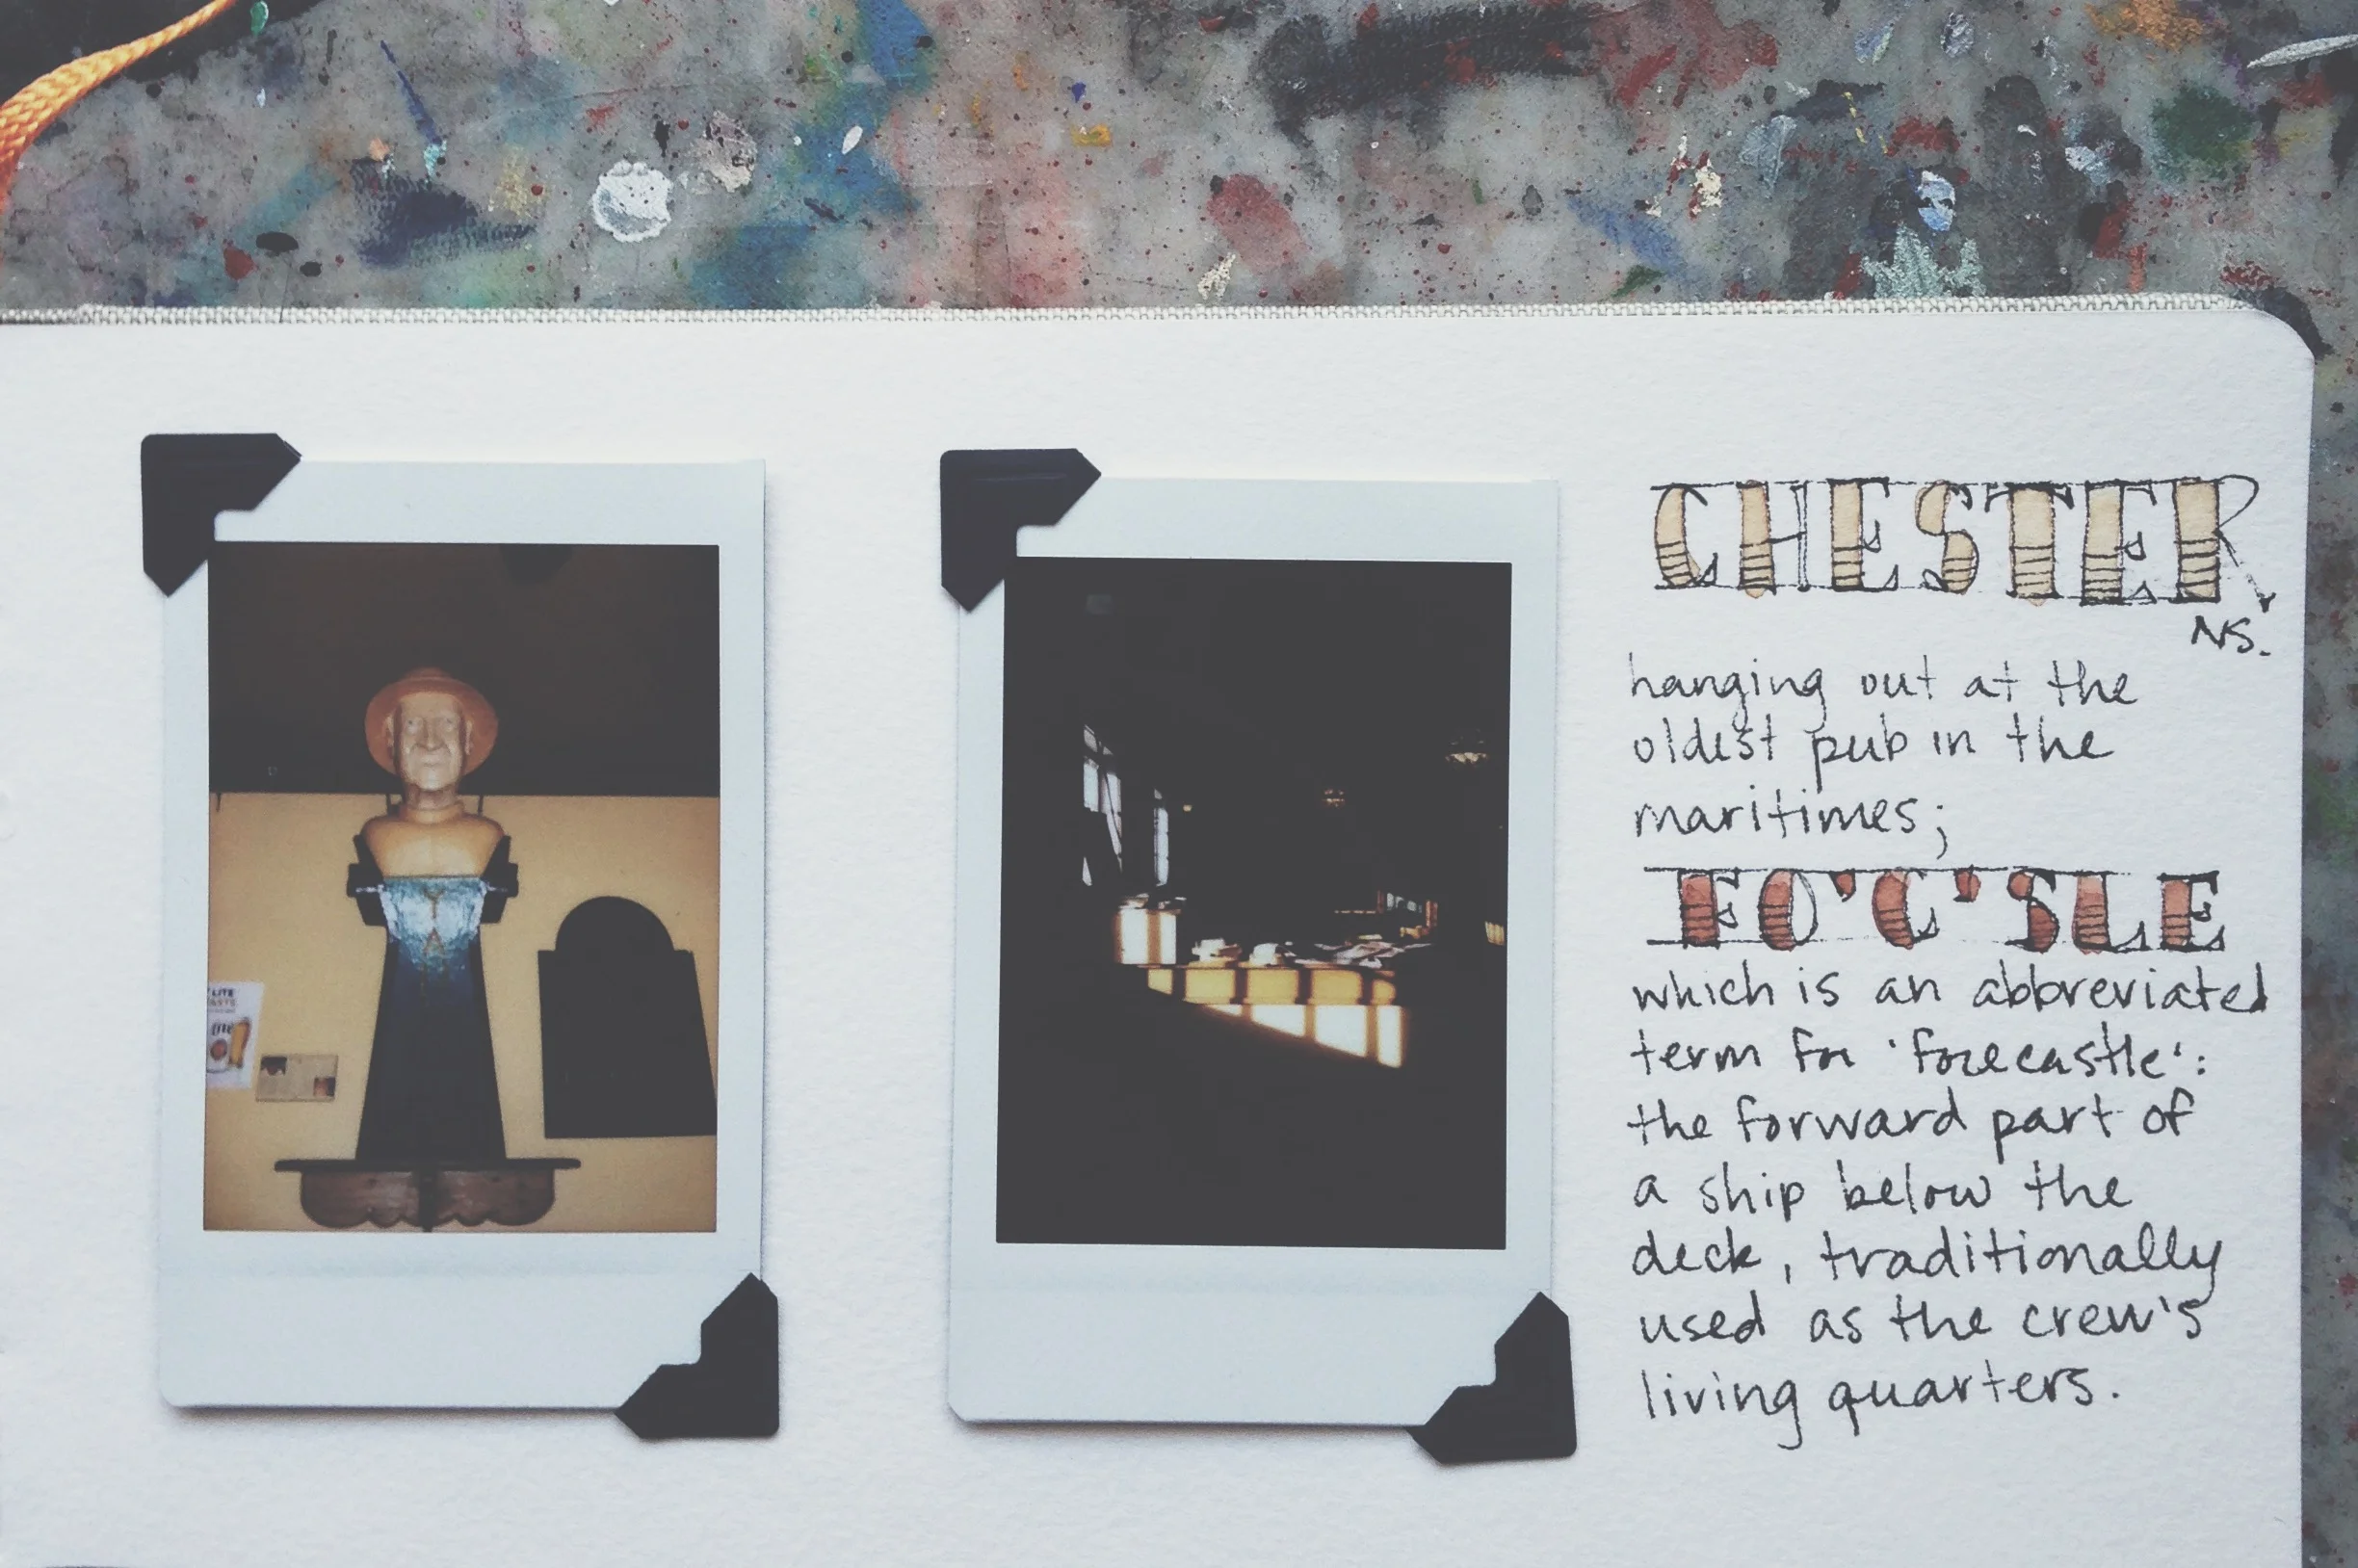 CHESTER
NS.
hanging out at the
oldest pub in the
maritimes;
FO'C'SLE
which is an abbreviated
term for 'forecastle':
the forward part of
a ship below the
deck, traditionally
used as the crew's
living quarters.
LITE